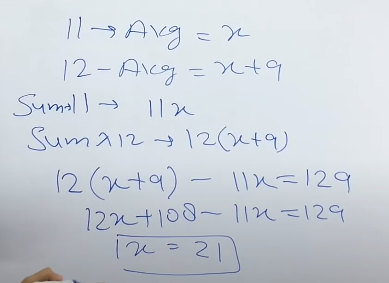 11 → Avg = x
12 - Avg = x+9
Sum 11 → 11x
Sum 12 → 12(x+9)
12(x+9) - 11x = 129
12x+108 - 11x = 129
x = 21